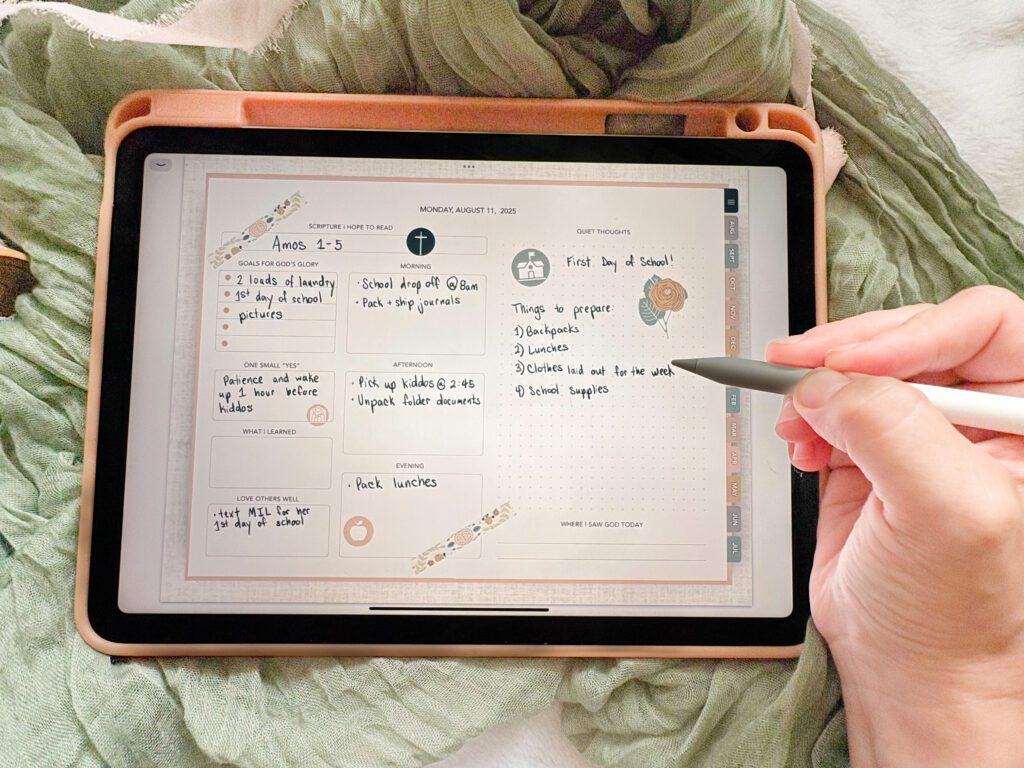 MONDAY, AUGUST 11, 2025
SCRIPTURE I HOPE TO READ
Amos 1-5
GOALS FOR GOD'S GLORY
2 loads of laundry
1st day of school
pictures
ONE SMALL "YES"
Patience and wake
up 1 hour before
kiddos
WHAT I LEARNED
LOVE OTHERS WELL
• text MIL for her
1st day of school
MORNING
• School drop off @ 8am
• Pack + ship journals
AFTERNOON
• Pick up kiddos @ 2:45
• Unpack folder documents
EVENING
• Pack lunches
QUIET THOUGHTS
First Day of School!
Things to prepare:
1) Backpacks
2) Lunches
3) Clothes laid out for the week
4) School supplies
WHERE I SAW GOD TODAY
AUG
SEPT
OCT
NOV
DEC
FEB
MAR
APR
MAY
JUN
JUL